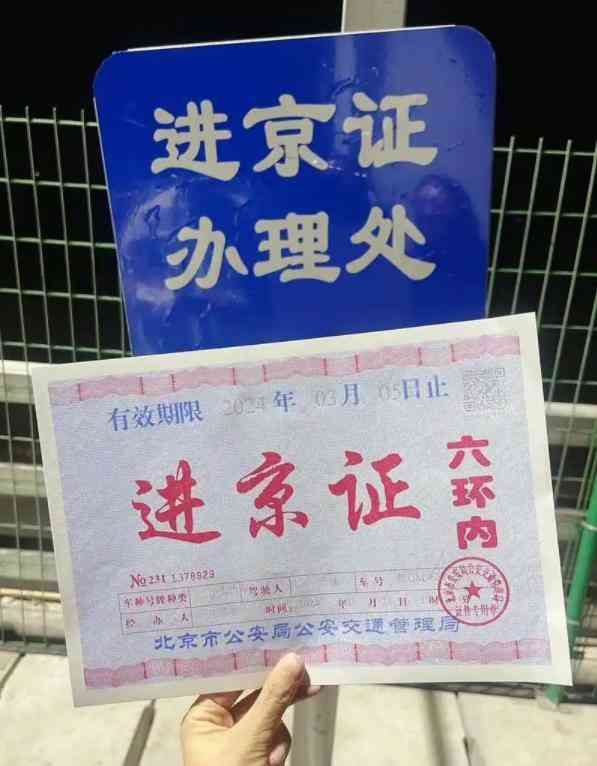 进京证
办理处
有效期限 2024年 03月 05日止
进京证
六环内
No 231 1378929
车种号牌种类 驾驶人 车号
经办人 时间: 年 月
北京市公安局公安交通管理局